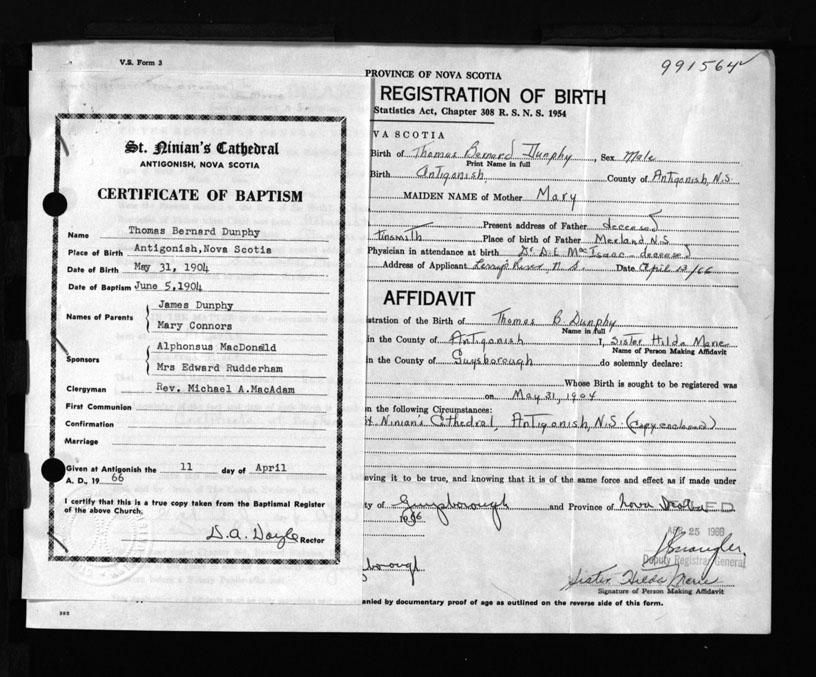 V.S. Form 3
991564
PROVINCE OF NOVA SCOTIA
REGISTRATION OF BIRTH
Statistics Act, Chapter 308 R. S. N. S. 1954
VA SCOTIA
Birth of Thomas Bernard Dunphy, Sex Male
Print Name in full
Birth Antigonish, County of Antigonish, N.S.
MAIDEN NAME of Mother Mary
Present address of Father deceased
Tinsmith Place of birth of Father Merland N.S.
Physician in attendance at birth Dr. D. E. MacIsaac - deceased
Address of Applicant River, N. S. Date April 12/66
AFFIDAVIT
stration of the Birth of Thomas B. Dunphy
Name in full
in the County of Antigonish I, Sister Hilda Marie
Name of Person Making Affidavit
in the County of Guysborough do solemnly declare:
Whose Birth is sought to be registered was
on May 31, 1904
n the following Circumstances:
St. Ninian's Cathedral, Antigonish, N.S. (copy enclosed)
eving it to be true, and knowing that it is of the same force and effect as if made under
ty of Guysborough and Province of Nova Scotia
1966
APR 25 1966
Deputy Registrar General
borough
Sister Hilda Marie
Signature of Person Making Affidavit
anied by documentary proof of age as outlined on the reverse side of this form.
St. Ninian's Cathedral
ANTIGONISH, NOVA SCOTIA
CERTIFICATE OF BAPTISM
Name Thomas Bernard Dunphy
Place of Birth Antigonish,Nova Scotia
Date of Birth May 31, 1904
Date of Baptism June 5,1904
Names of Parents James Dunphy
Mary Connors
Sponsors Alphonsus MacDonald
Mrs Edward Rudderham
Clergyman Rev. Michael A.MacAdam
First Communion
Confirmation
Marriage
Given at Antigonish the 11 day of April
A. D., 19 66
I certify that this is a true copy taken from the Baptismal Register
of the above Church.
D. A. Doyle Rector